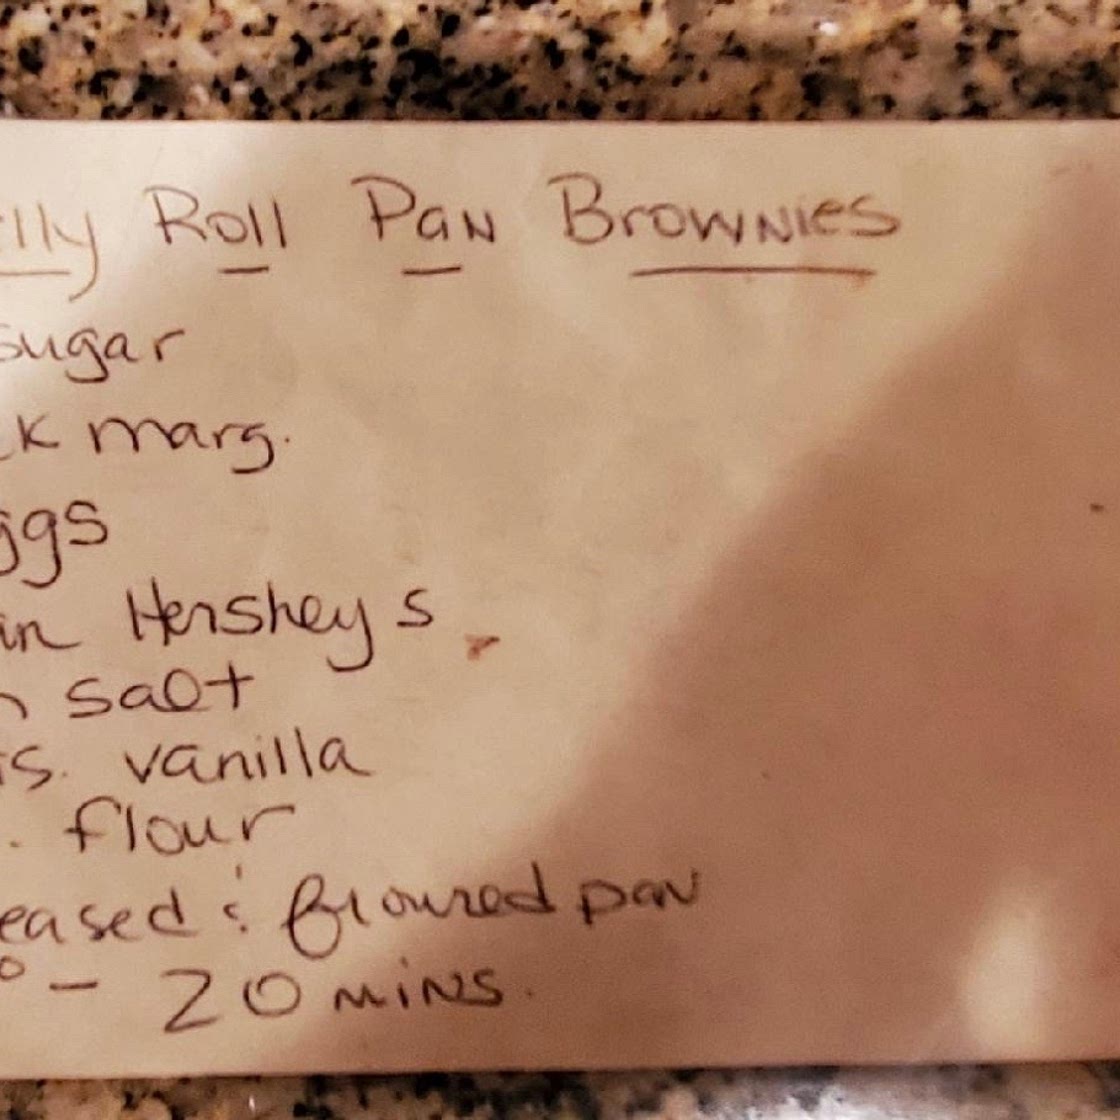 elly Roll Pan Brownies
Sugar
ck marg.
ggs
an Hershey s
n salt
s. vanilla
. flour
eased & floured pan
° - 20 mins.